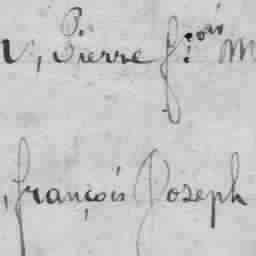 v, Pierre f.çois M
, françois Joseph